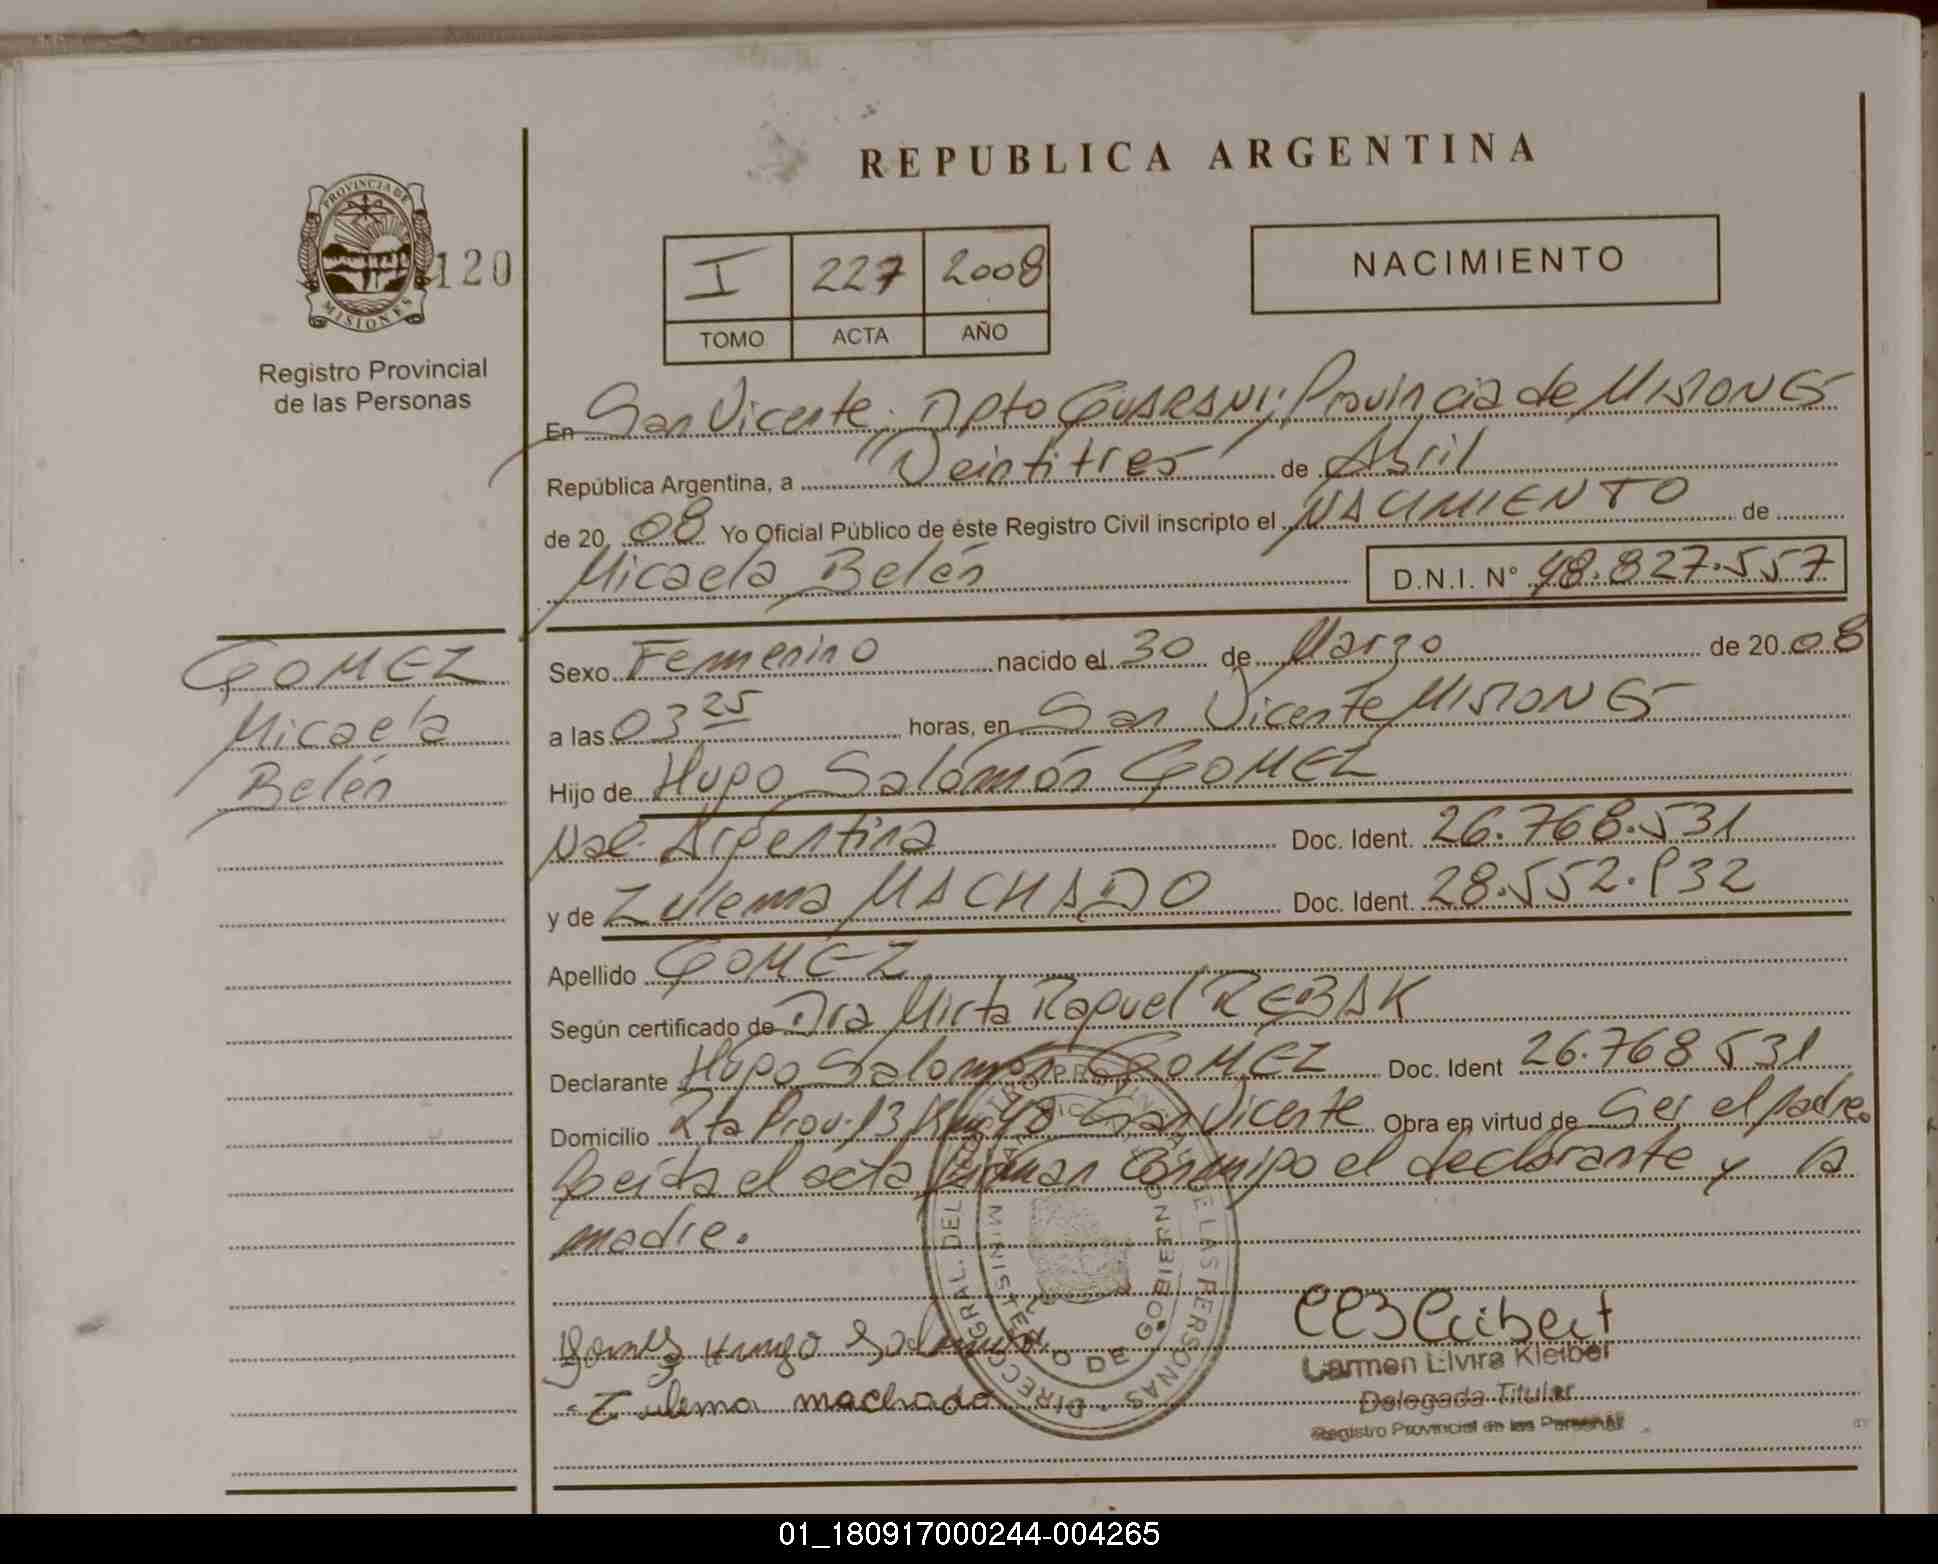 REPUBLICA ARGENTINA
PROVINCIA DE
MISIONES
120
Registro Provincial
de las Personas
I 227 2008
TOMO ACTA AÑO
NACIMIENTO
En San Vicente. Dpto GUARANI; Provincia de MISIONES
República Argentina, a Veintitres de Abril
de 20 08 Yo Oficial Público de éste Registro Civil inscripto el NACIMIENTO de
Micaela Belén D.N.I. N° 48.827.557
GOMEZ
Micaela
Belén
Sexo Femenino nacido el 30 de Marzo de 20 08
a las 03 25 horas, en San Vicente MISIONES
Hijo de Hugo Salomón GOMEZ
Nac. Argentina Doc. Ident. 26.768.531
y de Zulema MACHADO Doc. Ident. 28.552.932
Apellido GOMEZ
Según certificado de Dra Mirta Raquel REBAK
Declarante Hugo Salomón GOMEZ Doc. Ident 26.768.531
Domicilio Rta Prov. 13 Km 48 San Vicente Obra en virtud de Ser el padre
Leida el acta firman conmigo el declarante y la
madre.
DIRECC. GRAL. DEL REGISTRO PROVINCIAL DE LAS PERSONAS
MINISTERIO DE GOBIERNO
Gomez Hugo Salomon
Zulema machado
Carmen Elvira Kleiber
Delegada Titular
Registro Provincial de las Personas
01_180917000244-004265